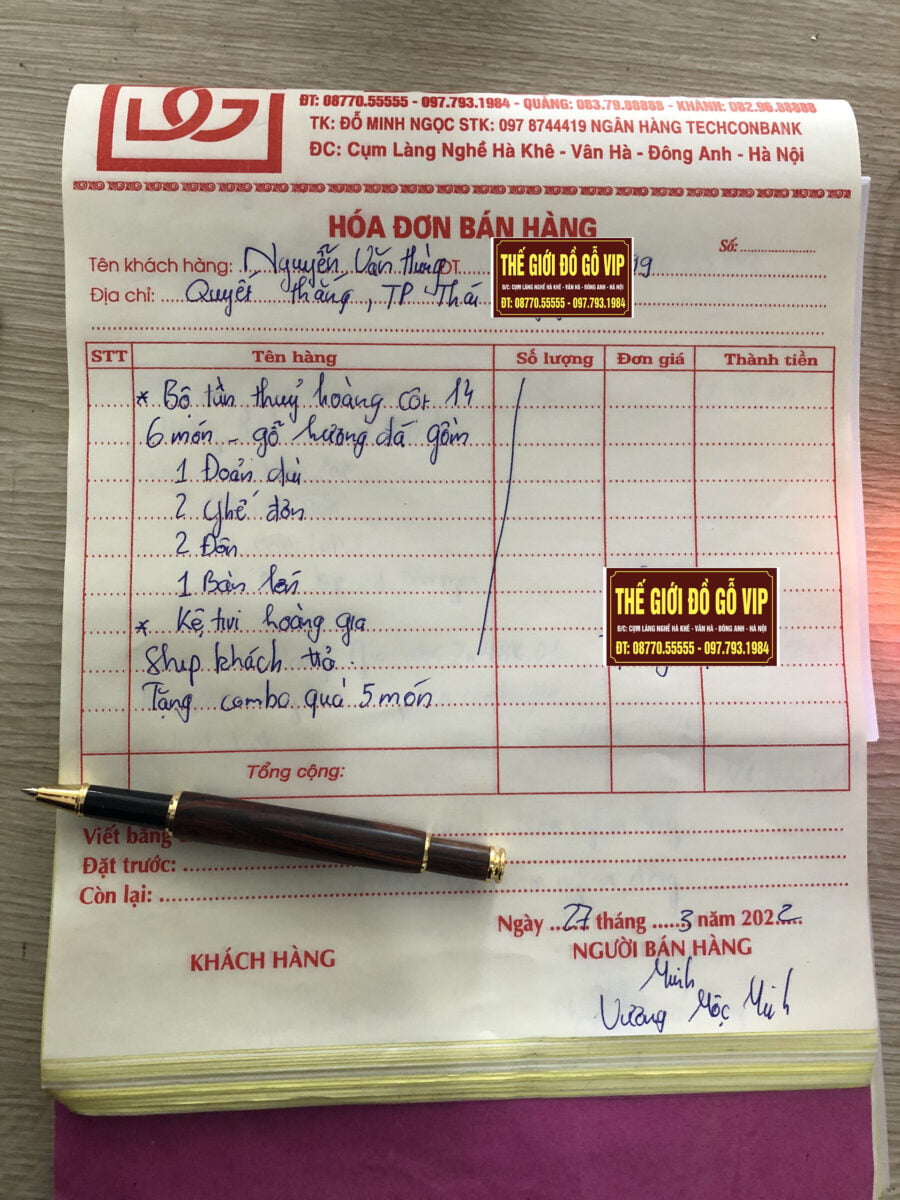 ĐT: 08770.55555 - 097.793.1984 - QUẢNG: 083.79.88888 - KHÁNH: 082.96.88888
TK: ĐỖ MINH NGỌC STK: 097 8744419 NGÂN HÀNG TECHCONBANK
ĐC: Cụm Làng Nghề Hà Khê - Vân Hà - Đông Anh - Hà Nội
HÓA ĐƠN BÁN HÀNG
Số:
Tên khách hàng: Nguyễn Văn Hùng ĐT 19
Địa chỉ: Quyết thắng, TP Thái
THẾ GIỚI ĐỒ GỖ VIP
Đ/C: CỤM LÀNG NGHỀ HÀ KHÊ - VÂN HÀ - ĐÔNG ANH - HÀ NỘI
ĐT: 08770.55555 - 097.793.1984
STT Tên hàng Số lượng Đơn giá Thành tiền
* Bộ tần thuỷ hoàng cột 14
6 món - gỗ hương đá gồm
1 Đoản dài
2 Ghế đơn
2 Đôn
1 Bàn lớn
* Kệ tivi hoàng gia
Ship khách trả.
Tặng combo quà 5 món
THẾ GIỚI ĐỒ GỖ VIP
Đ/C: CỤM LÀNG NGHỀ HÀ KHÊ - VÂN HÀ - ĐÔNG ANH - HÀ NỘI
ĐT: 08770.55555 - 097.793.1984
Tổng cộng:
Viết bằng
Đặt trước:
Còn lại:
Ngày 27 tháng 3 năm 2022
KHÁCH HÀNG NGƯỜI BÁN HÀNG
Minh
Vương Mộc Minh